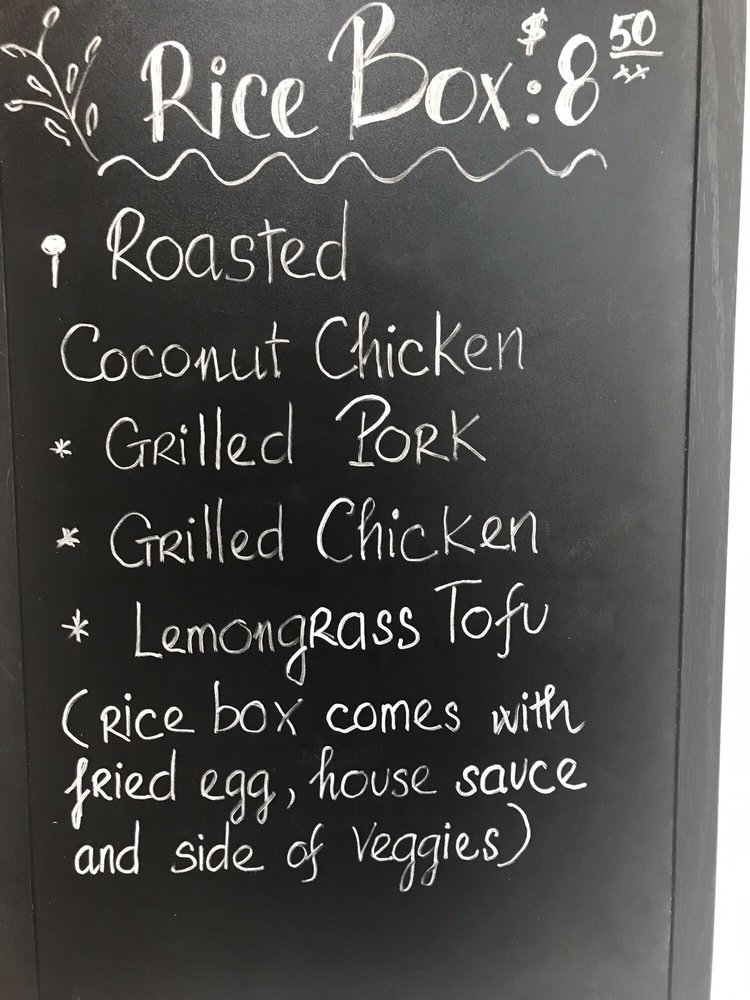 Rice Box: $8 50
Roasted
Coconut Chicken
* Grilled Pork
* Grilled Chicken
* Lemongrass Tofu
(rice box comes with
fried egg, house sauce
and side of veggies)